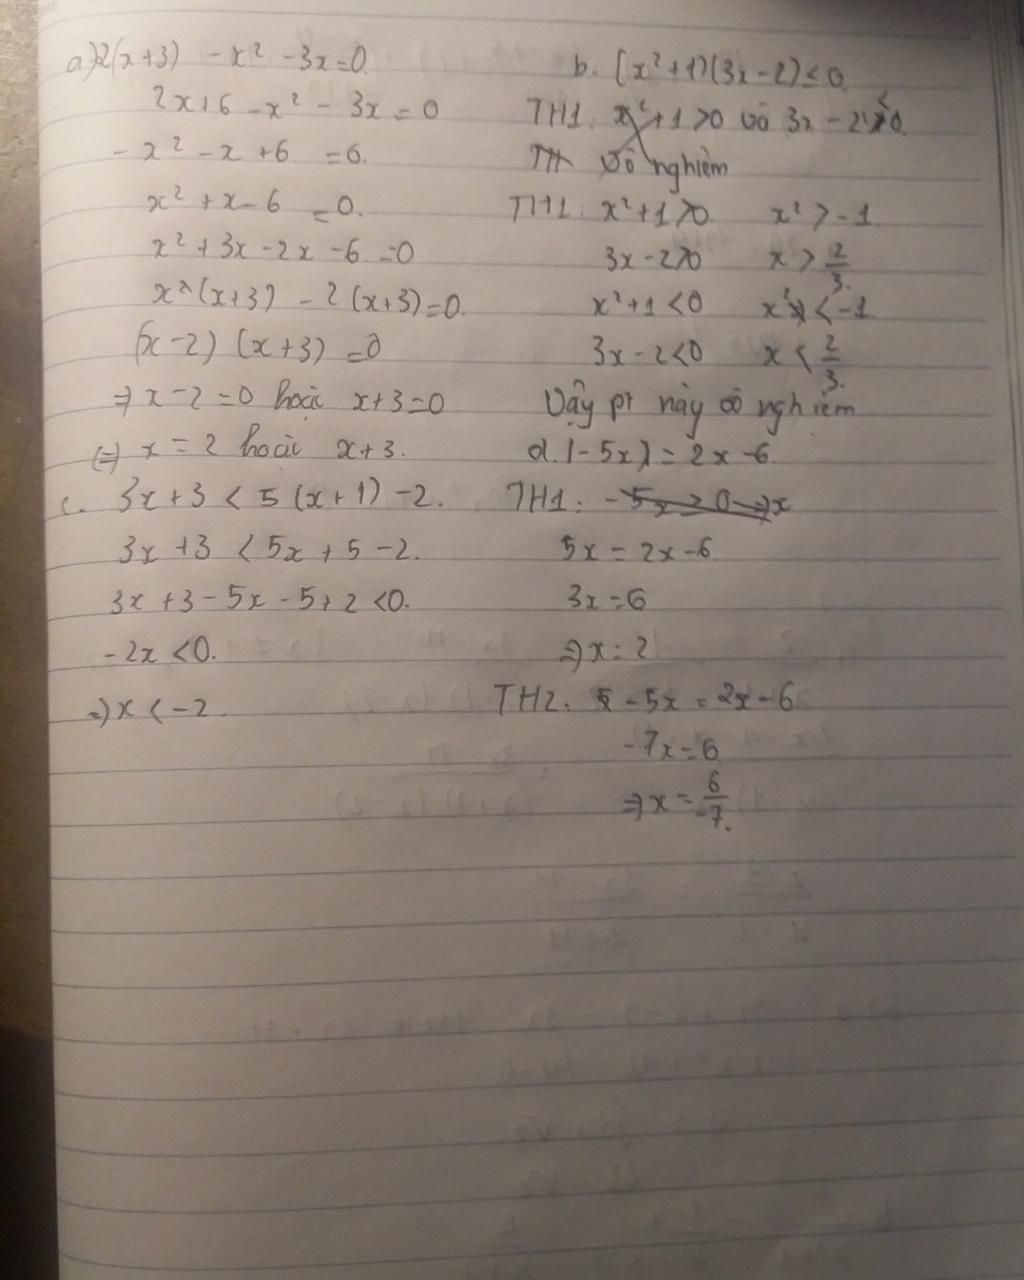 a) 2(x+3) - x² - 3x = 0
2x+6 - x² - 3x = 0
- x² - x + 6 = 6.
x² + x - 6 = 0.
x² + 3x - 2x - 6 = 0
x²(x+3) - 2(x+3) = 0.
(x-2) (x+3) = 0
⇒ x-2 = 0 hoặc x+3 = 0
(=) x = 2 hoặc x+3.
c. 3x+3 < 5(x+1) - 2.
3x+3 < 5x+5-2.
3x+3-5x-5+2 <0.
-2x <0.
=) x < -2.
b. (x²+1)(3x-2) ≤ 0
TH1: x²+1 >0 và 3x-2 < 0.
TH Vô nghiệm
TH1: x²+1>0 x² > -1
3x-2>0 x > 2/3.
x²+1 <0 x² < -1
3x-2<0 x < 2/3.
Vậy pt này có nghiệm
d. |-5x| = 2x-6
TH1: -5x ≥ 0 =) x
5x = 2x-6
3x = 6
=) x = 2
TH2. -5x = 2x-6
-7x = 6
=) x = 6/-7.